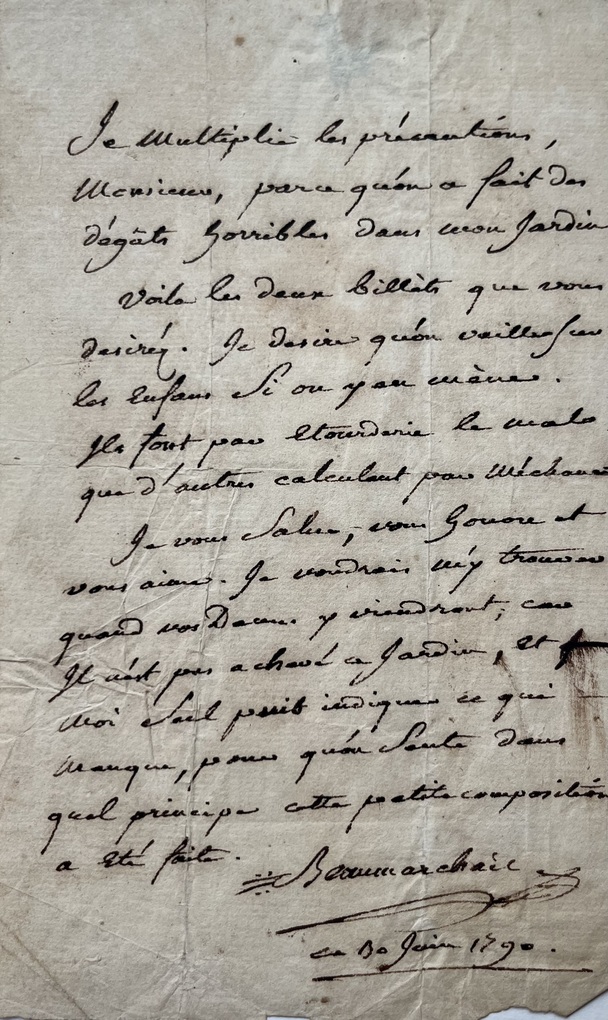 Je Multiplie les précautions,
Monsieur, parce qu'on a fait des
dégâts horribles dans mon Jardin
Voila les deux billèts que vous
desiréz. Je desire qu'on veille sur
les Enfans Si on y en mène.
Ils font par Etourderie le mal
que d'autres calculent par Méchance
Je vous Salue, vous honore et
vous aime. Je voudrais m'y trouver
quand vos Dames y viendront; car
Il n'est pas achevé ce Jardin, et
Moi Seul puis indiquer ce qui
Manque, pour qu'on Sente dans
quel principe cette petite composition
a Eté faite.
Beaumarchais
ce 30 Juin 1790.